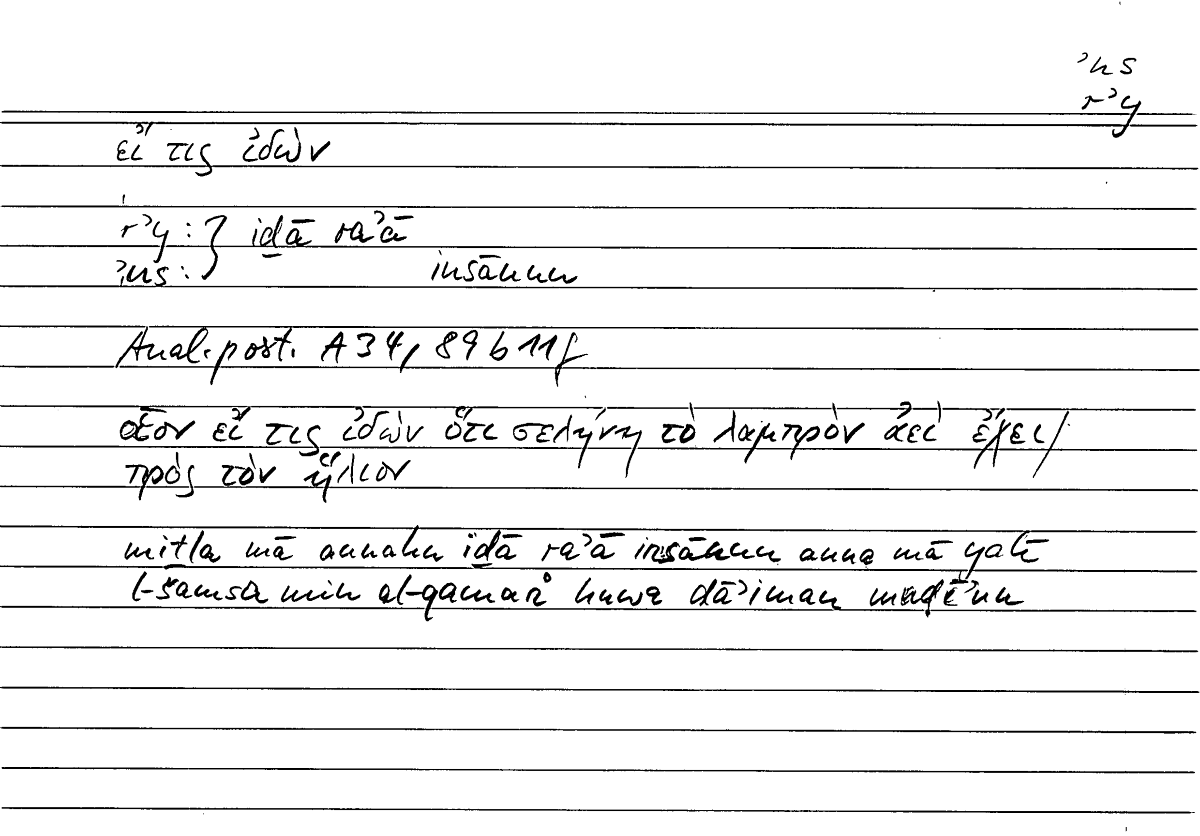 ʾns
rʾy
εἴ τις ἰδὼν
rʾy : } iḏā raʾā
ʾns : } insānun
Anal. post. A 34, 89 b 11 f
οἷον εἴ τις ἰδὼν ὅτι σελήνη τὸ λαμπρὸν ἀεὶ ἔχει/
πρὸς τὸν ἥλιον
miṯla mā annahu iḏā raʾā insānun anna mā yalī
l-šamsa min al-qamari huwa dāʾiman muḍīʾun